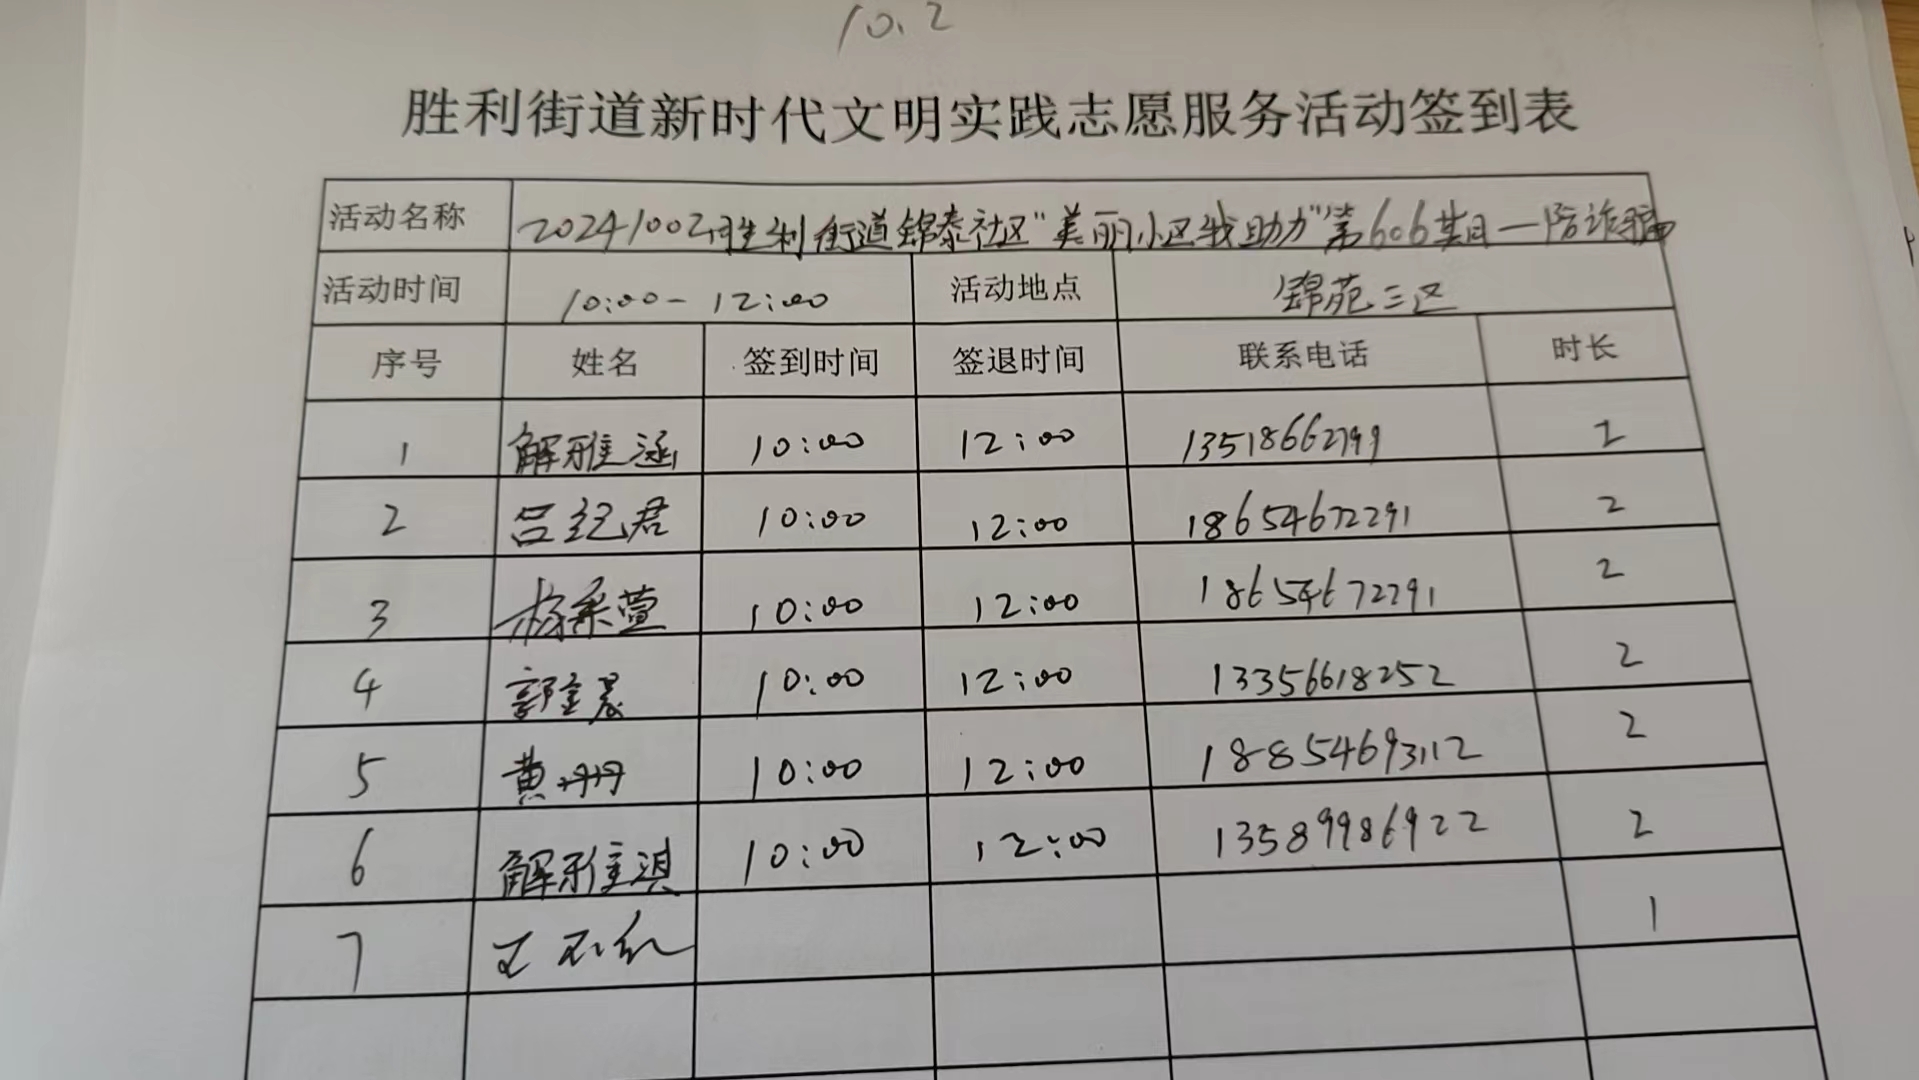 10.2
胜利街道新时代文明实践志愿服务活动签到表
活动名称 20241002胜利街道锦泰社区“美丽小区我助力”第606期—防诈骗
活动时间 10:00-12:00 活动地点 锦苑三区
序号 姓名 签到时间 签退时间 联系电话 时长
1 解雅涵 10:00 12:00 13518662799 2
2 吕纪君 10:00 12:00 18654672291 2
3 杨采萱 10:00 12:00 18654672291 2
4 郭金晨 10:00 12:00 13356618252 2
5 黄丹丹 10:00 12:00 18854693112 2
6 解雅淇 10:00 12:00 13589986922 2
7 王 1